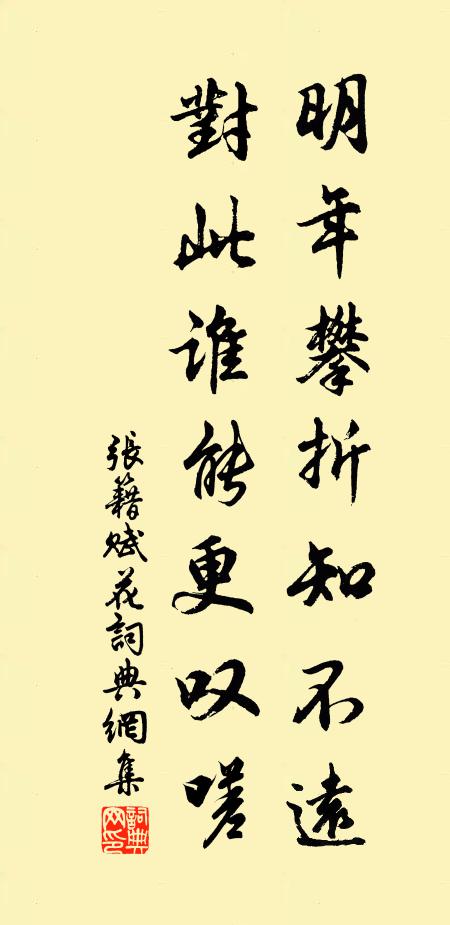 明年攀折知不遠
對此谁能更叹嗟
張籍赋花詞典網集
詞典網印